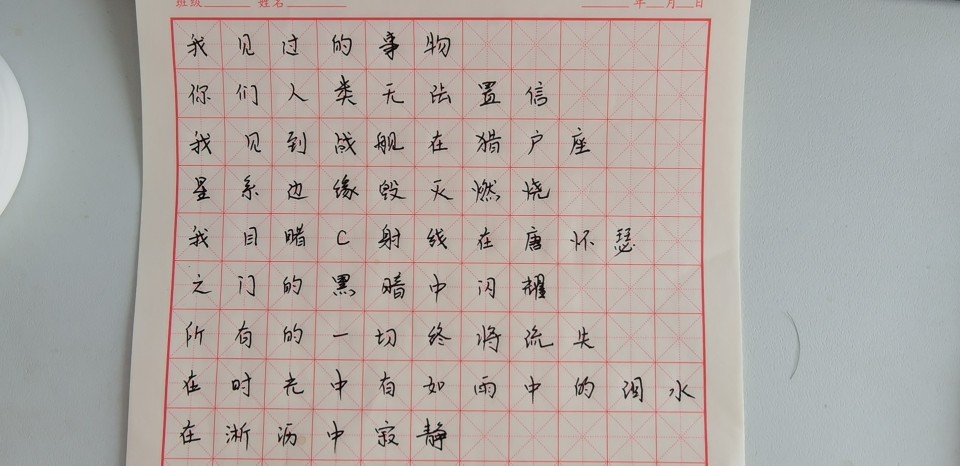 班级 姓名 年 月 日
我见过的事物
你们人类无法置信
我见到战舰在猎户座
星系边缘毁灭燃烧
我目睹C射线在唐怀瑟
之门的黑暗中闪耀
所有的一切终将流失
在时光中有如雨中的泪水
在淅沥中寂静